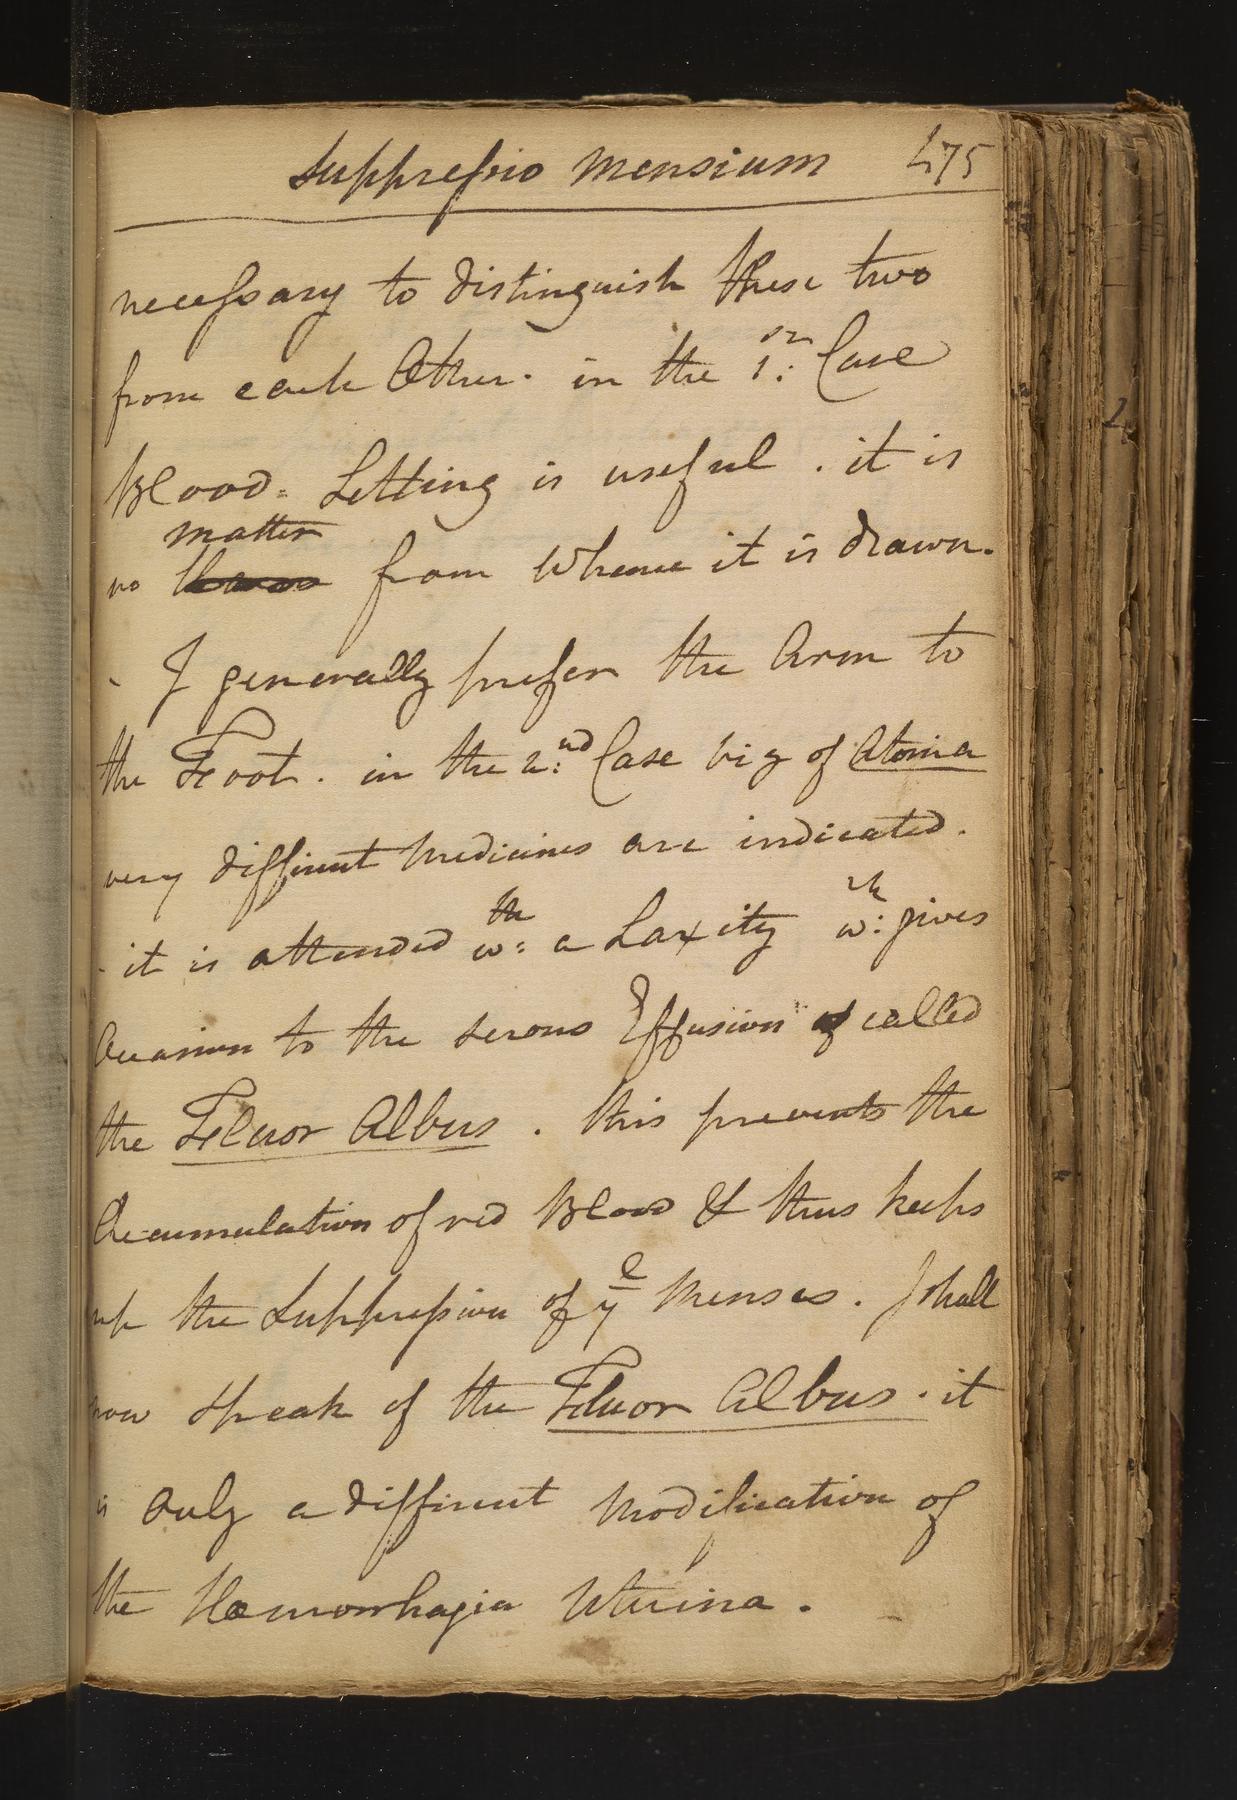 Suppressio Mensium 475
necessary to distinguish these two
from each Other. in the 1:st Case
Blood= Letting is useful. it is
matter
no from Whence it is drawn.
- I generally prefer the Arm to
the Foot. in the 2:nd Case viz of Atonia
very different Medicines are indicated.
- it is attended w:th a Laxity w:ch gives
Occasion to the serous Effusion called
the Fluor Albus. this prevents the
Accumulation of red Blood & thus keeps
up the Suppression of ye Menses. I shall
now speak of the Fluor Albus. it
is Only a different Modification of
the Hæmorrhagia Uterina.